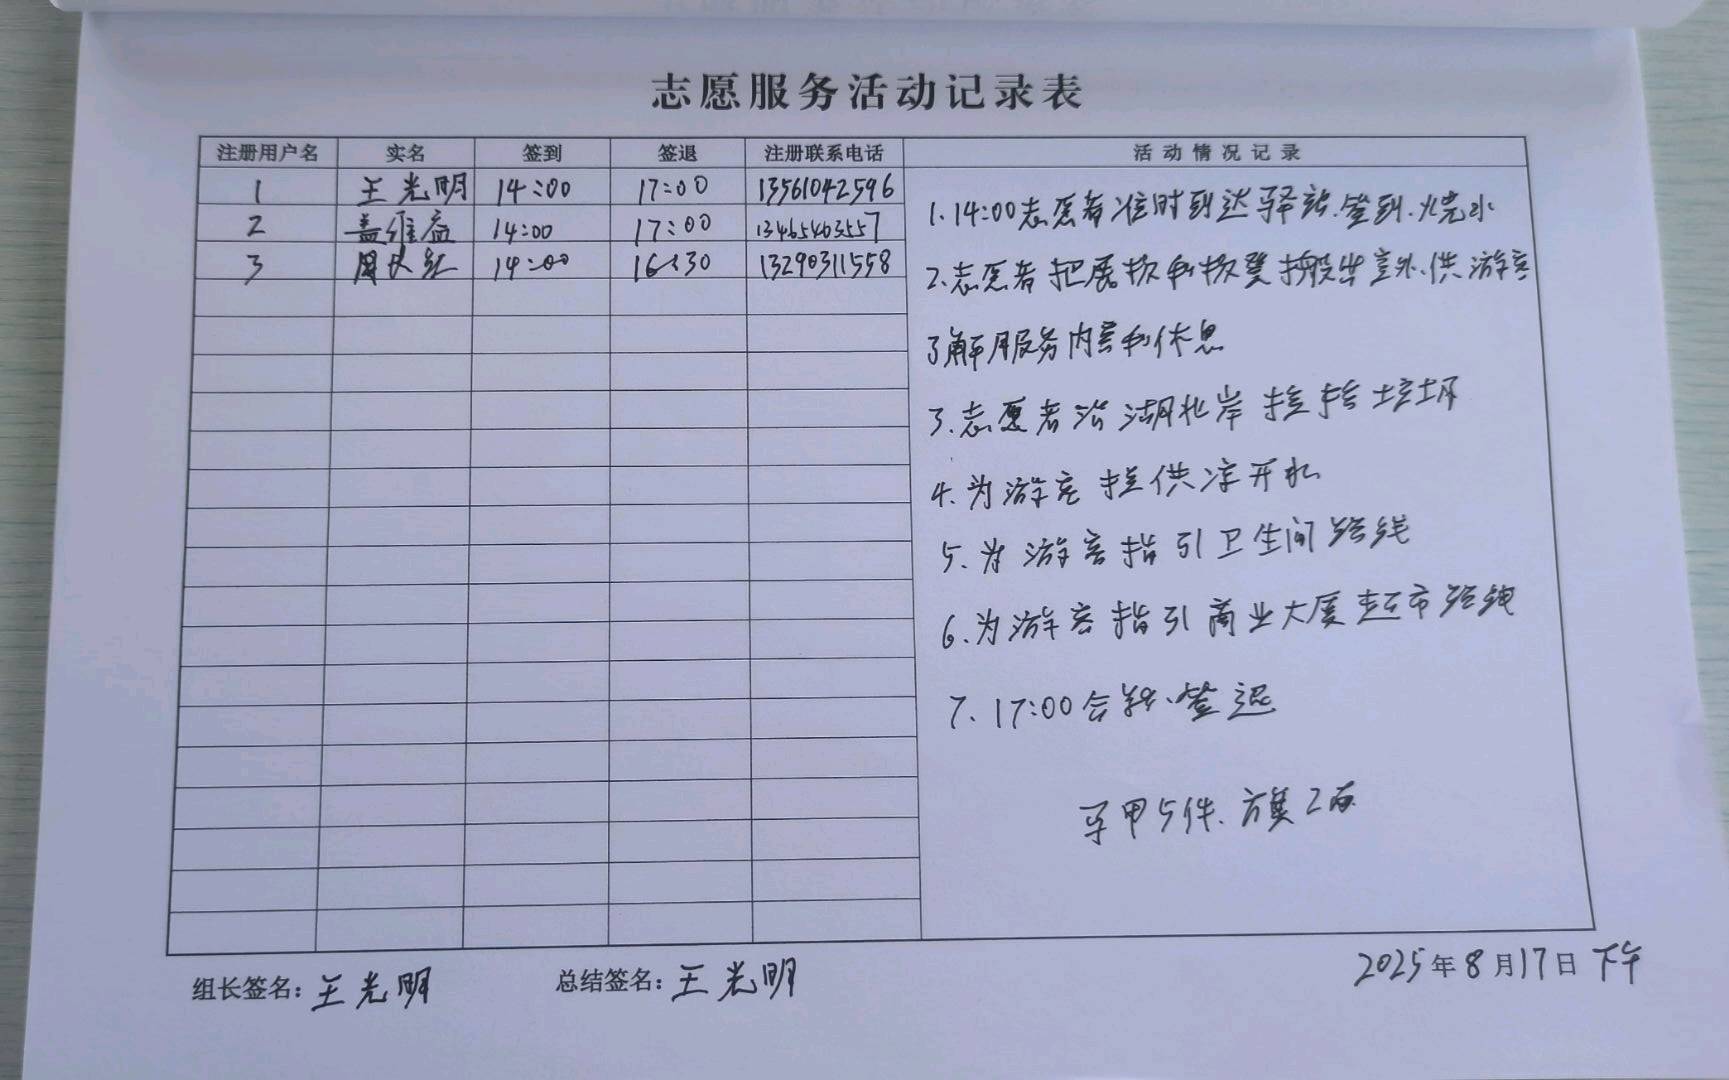 志愿服务活动记录表
注册用户名 实名 签到 签退 注册联系电话 活动情况记录
1 王光明 14:00 17:00 13561042596
2 盖维益 14:00 17:00 13465403557
3 周长红 14:00 16:30 13290311558
1.14:00志愿者准时到达驿站.签到.烧水
2.志愿者把展板和板凳搬出室外、供游客
了解服务内容和休息
3.志愿者沿湖北岸捡拾垃圾
4.为游客提供凉开水
5.为游客指引卫生间路线
6.为游客指引商业大厦超市路线
7.17:00合影、签退
马甲5件.旗2面
组长签名：王光明 总结签名：王光明 2025年8月17日下午